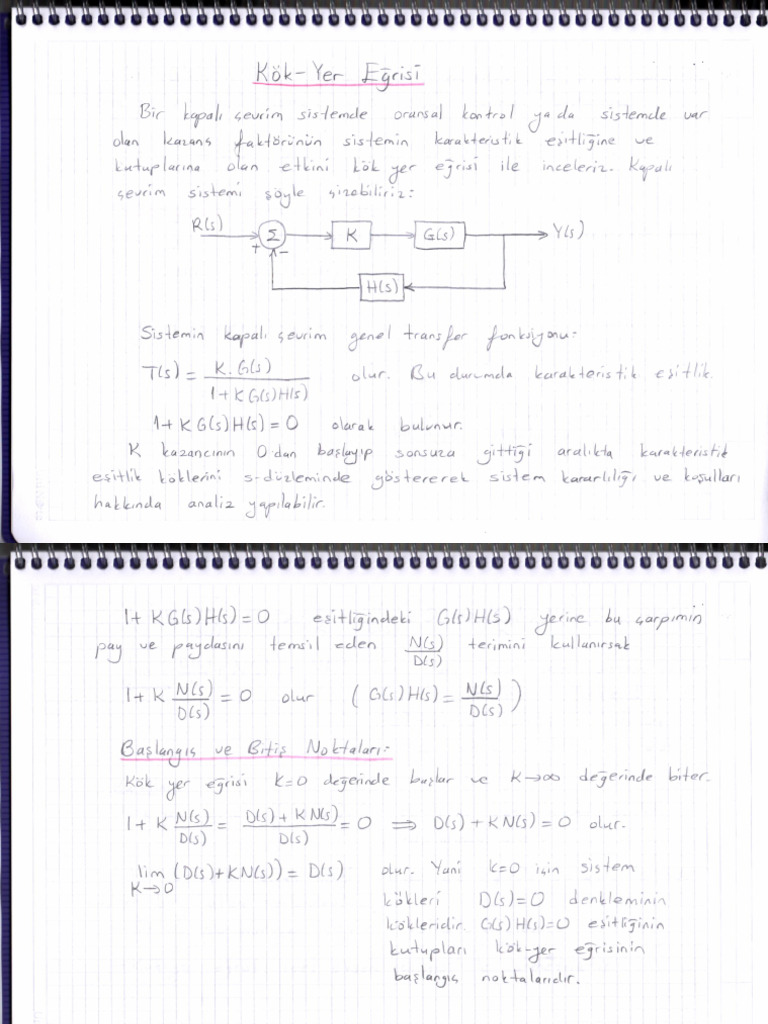 Kök-Yer Eğrisi
Bir kapalı çevrim sistemde oransal kontrol ya da sistemde var
olan kazanç faktörünün sistemin karakteristik eşitliğine ve
kutuplarına olan etkini kök yer eğrisi ile inceleriz. Kapalı
çevrim sistemi şöyle çizebiliriz:
R(s) + Σ - K G(s) Y(s)
H(s)
Sistemin kapalı çevrim genel transfer fonksiyonu:
T(s) = K.G(s) / 1+KG(s)H(s) olur. Bu durumda karakteristik eşitlik.
1+KG(s)H(s)=0 olarak bulunur.
K kazancının 0'dan başlayıp sonsuza gittiği aralıkta karakteristik
eşitlik köklerini s-düzleminde göstererek sistem kararlılığı ve koşulları
hakkında analiz yapılabilir.
1+KG(s)H(s)=0 eşitliğindeki G(s)H(s) yerine bu çarpımın
pay ve paydasını temsil eden N(s)/D(s) terimini kullanırsak
1+K N(s)/D(s) = 0 olur (G(s)H(s) = N(s)/D(s))
Başlangıç ve Bitiş Noktaları:
Kök yer eğrisi k=0 değerinde başlar ve K→∞ değerinde biter.
1+K N(s)/D(s) = D(s)+KN(s)/D(s) = 0 ⟹ D(s)+KN(s)=0 olur.
lim K→0 (D(s)+KN(s)) = D(s) olur. Yani k=0 için sistem
kökleri D(s)=0 denkleminin
kökleridir. G(s)H(s)=0 eşitliğinin
kutupları kök-yer eğrisinin
başlangıç noktalarıdır.